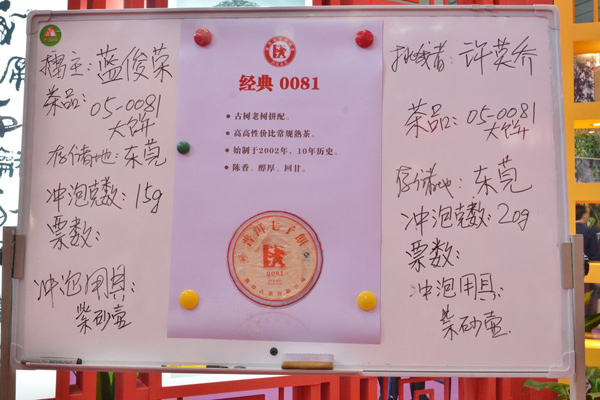 擂主：蓝俊荣
茶品：05-0081
大饼
存储地：东莞
冲泡克数：15g
票数：
冲泡用具：
紫砂壶
经典 0081
• 古树老树拼配。
• 高高性价比常规熟茶。
• 始制于2002年，10年历史。
• 陈香、醇厚、回甘。
普洱七子饼
0081
挑战者：许英乔
茶品：05-0081
大饼
存储地：东莞
冲泡克数：20g
票数：
冲泡用具：
紫砂壶